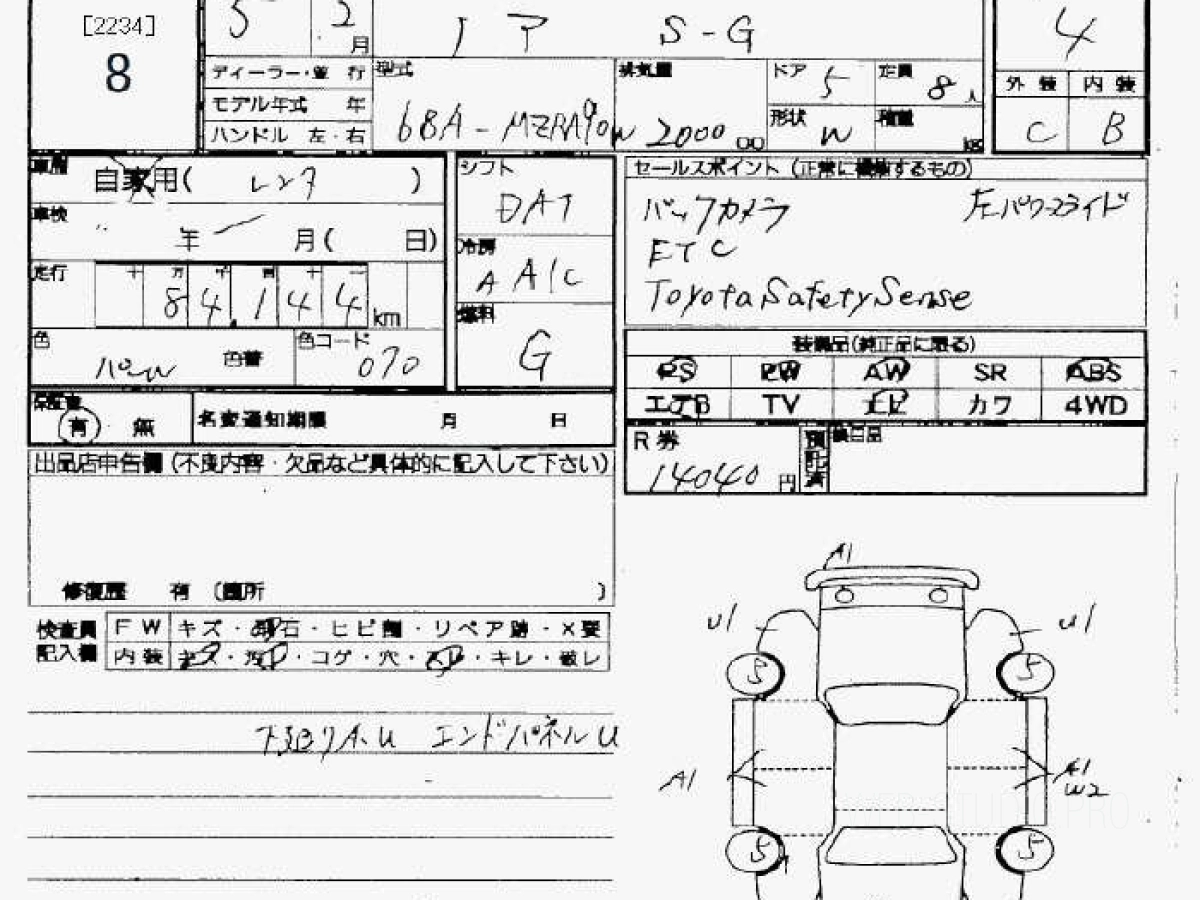 [2234]
8
5 2月
ノア S-G
4
ディーラー・並行
モデル年式 年
ハンドル 左・右
型式
6BA-MZRA90W
排気量
2000 cc
ドア 5
定員 8人
形状 W
積量 kg
外装 内装
C B
車歴
自家用( レンタ )
車検
年 月( 日)
走行
十 万 千 百 十 一
84,144 km
色
パール 色替
色コード 070
シフト
DAT
冷房
AAC
燃料
G
セールスポイント (正常に機能するもの)
バックカメラ 左パワースライド
ETC
Toyota Safety Sense
装備品(純正品に限る)
PS PW AW SR ABS
エアB TV ナビ カワ 4WD
保証書
有 無
名変通知期限 月 日
R券
14040円
預託済
後日品
出品店申告欄 (不良内容・欠品など具体的に記入して下さい)
修復歴 有 (箇所 )
検査員記入欄
FW キズ・飛石・ヒビ割・リペア跡・X要
内装 キズ・汚れ・コゲ・穴・スレ・キレ・破レ
下廻りA.U エンドパネルU
A1
U1 U1
5 5
A1 A1
W2
5 5